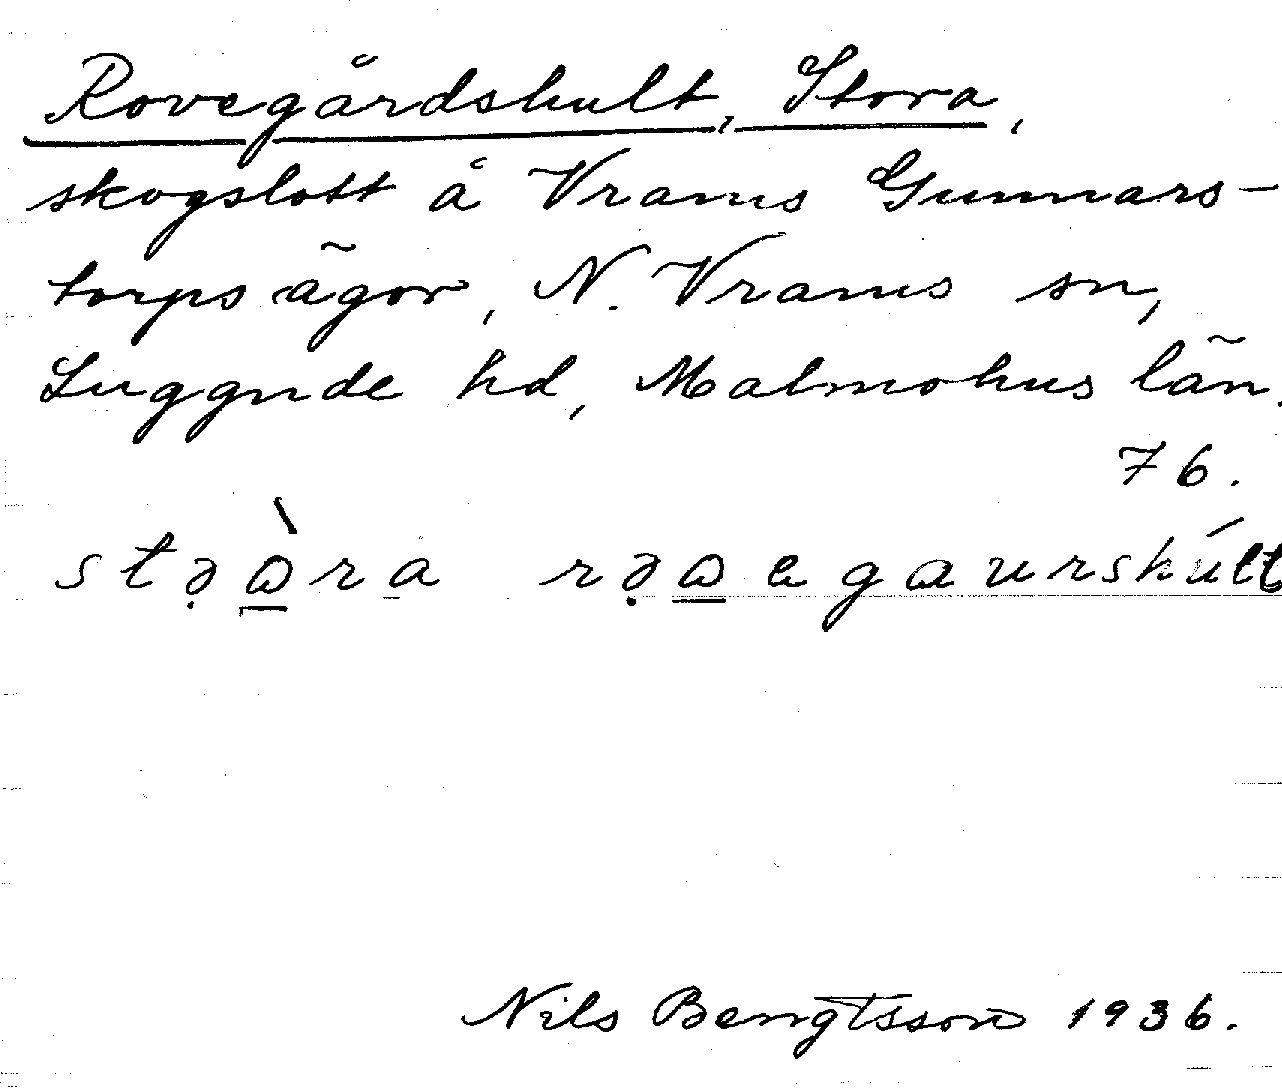 Rovegårdshult, Stora,
skogslott å Vrams Gunnars-
torps ägor, N. Vrams sn,
Luggude hd, Malmohus län.
76.
stə̣ɷ̲̀ra rə̣ɷ̲egaurshúlt
Nils Bengtsson 1936.